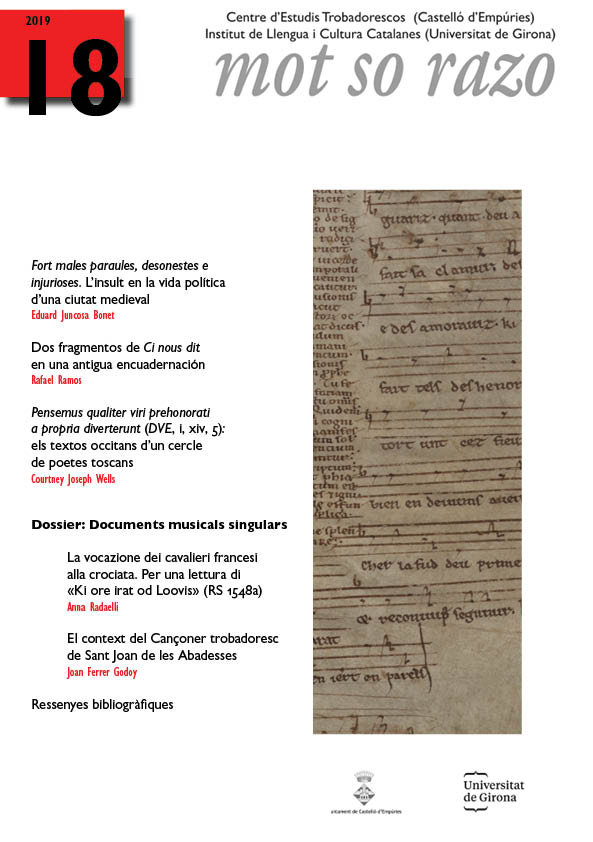 2019
18
Centre d'Estudis Trobadorescos (Castelló d'Empúries)
Institut de Llengua i Cultura Catalanes (Universitat de Girona)
mot so razo
Fort males paraules, desonestes e
injurioses. L'insult en la vida política
d'una ciutat medieval
Eduard Juncosa Bonet
Dos fragmentos de Ci nous dit
en una antigua encuadernación
Rafael Ramos
Pensemus qualiter viri prehonorati
a propria diverterunt (DVE, i, xiv, 5):
els textos occitans d'un cercle
de poetes toscans
Courtney Joseph Wells
Dossier: Documents musicals singulars
La vocazione dei cavalieri francesi
alla crociata. Per una lettura di
«Ki ore irat od Loovis» (RS 1548a)
Anna Radaelli
El context del Cançoner trobadoresc
de Sant Joan de les Abadesses
Joan Ferrer Godoy
Ressenyes bibliogràfiques
guariz. quant deu a
fait sa clamur des
e des amoraviz. ki
fait tels deshenor
tort unt cez fieu
bien en devums aver
cher la fud deu prime
en iert en pareis
untament de Castelló d'Empúries
Universitat
de Girona